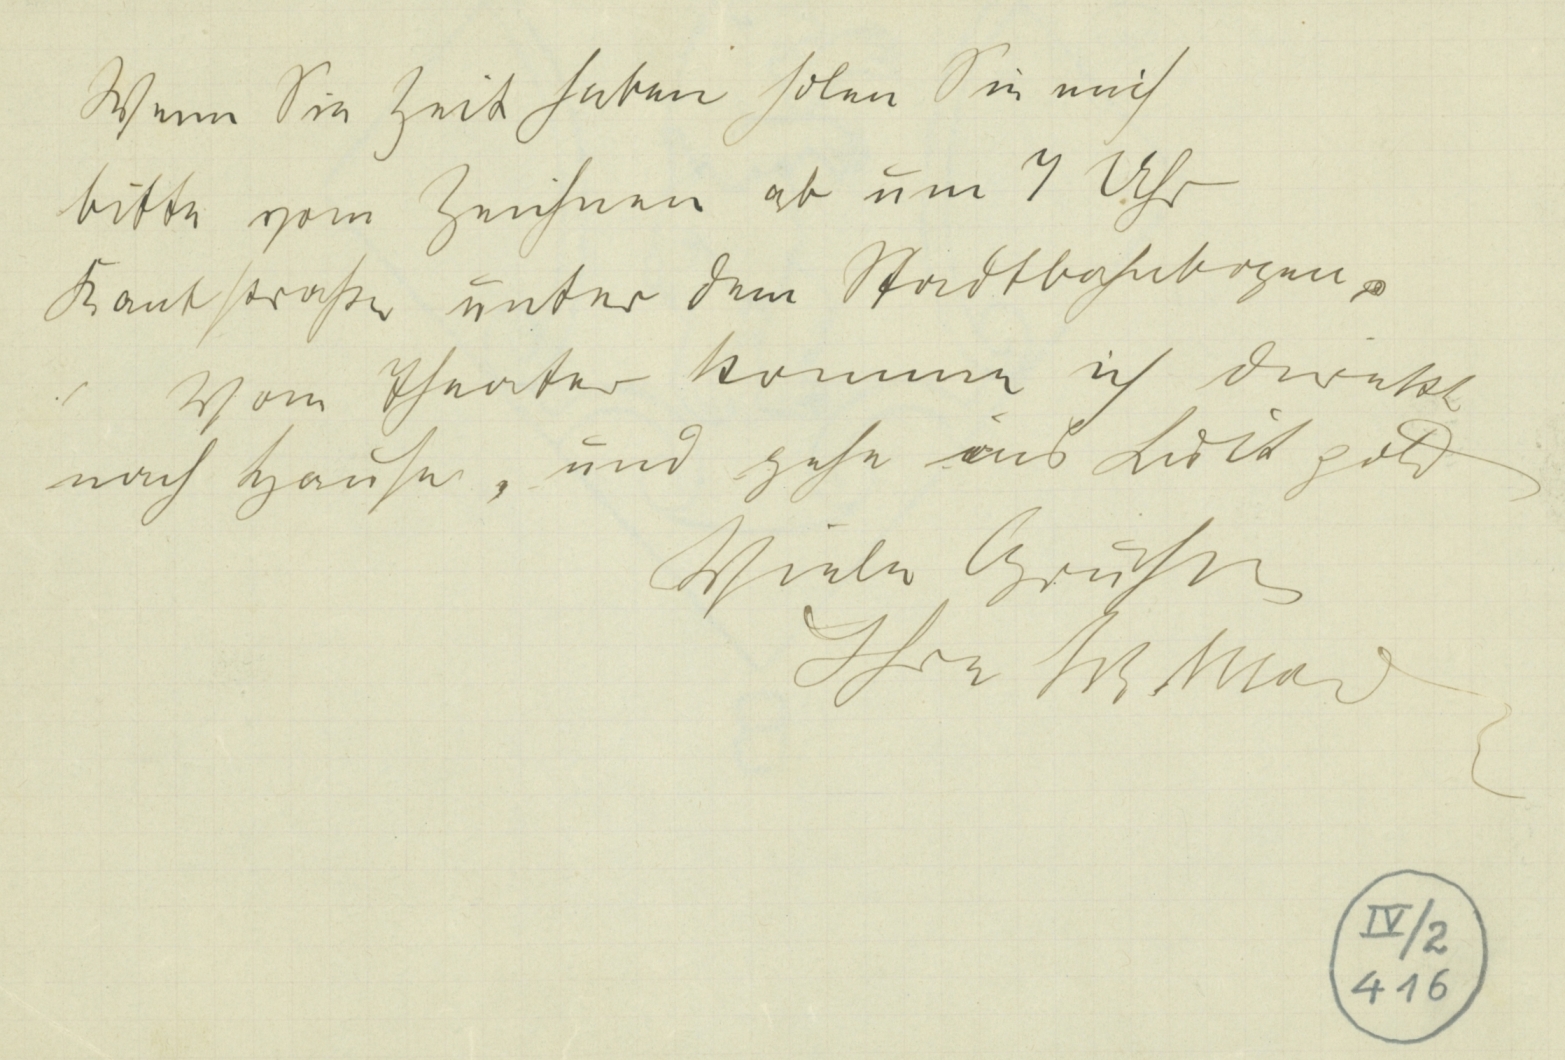 Wenn Sie Zeit haben holen Sie mich
bitte vom Zeichnen ab um 7 Uhr
Kantstraße unter dem Stadtbahnbogen.
Vom Theater komme ich direkt
nach Hause, und gehe ins Luitpold
Viele Grüße
Ihre
IV/2
416